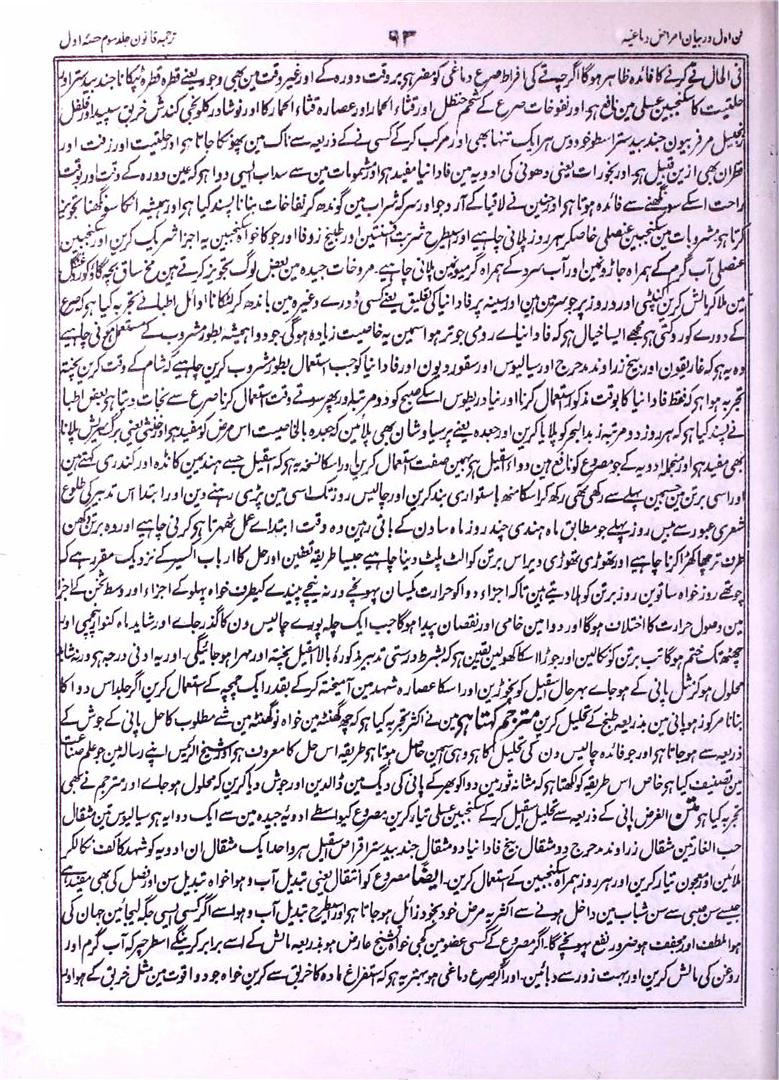 فن اول در بیان امراض دماغیہ ۹۳ ترجمہ قانون جلد سوم حصۂ اول
فی الحال قے کرنے کا فائدہ ظاہر ہوگا اگرچہ قے کی افراط صرع دماغی کو مضر ہی بروقت دورہ کے اور غیر وقت مین بھی وجور یعنے قطرہ قطرہ ٹپکانا جند بیدستر اور
حلتیت کا سکنجبین عسلی مین نافع ہی اور نفوخات صرع کے شحم حنظل اور قثاء الحمار اور عصارہ قثاء الحمار کا اور نوشادر کلونجی کندش خربق سپید اور فلفل
زنجبیل مر فربیون جند بیدستر اسطوخودوس ہر ایک تنہا بھی اور مرکب کر کے کسی نے کے ذریعہ سے ناک مین پھونکا جاتا ہی اور حلتیت اور زفت اور
قطران بھی ازین قبیل ہی اور بخورات یعنی دھونی کی ادویہ مین فاوانیا مفید ہی اور شمومات مین سے سداب ایسی دوا ہی کہ عین دورہ کے وقت اور بوقت
راحت اسکے سونگھنے سے فائدہ ہوتا ہی اور حنین نے لافیا کے آرد جو اور سرکہ شراب مین گوندھ کر نفاخات بنانا پسند کیا ہی اور ہمیشہ انکا سونگھنا تجویز
کرتا ہی مشروبات مین سکنجبین عنصلی خاصکر ہر روز پلانی چاہیے اور اسیطرح شربت افسنتین اور طبیخ زوفا اور جو کا خواہ سکنجبین یہ اجزا شریک کرین اور سکنجبین
عنصلی آب گرم کے ہمراہ جاڑونمین اور آب سرد کے ہمراہ گرمیونمین پلانی چاہیے۔ مروخات جیدہ مین بعض لوگ تجویز کرتے ہین مخ ساق بچہ گاؤ کو روغن گل
مین ملا کر مالش کرین کنپٹی اور دروز پر جو سر مین ہین اور سینہ پر فاوانیا کی تعلیق یعنے کسی ڈورے وغیرہ مین باندھ کر لٹکانا اوائل اطبا نے تجربہ کیا ہی کہ صرع
کے دورے کو روکتی ہی مجھے ایسا خیال ہی کہ فاوانیاے رومی جو تر ہو اسمین یہ خاصیت زیادہ ہوگی جو دوا ہمیشہ بطور مشروب کے مستعمل ہونی چاہیے
وہ یہ ہی کہ غاریقون اور بیخ زراوند مدحرج اور سیالیوس اور سقوردیون اور فاوانیا کو جب استعمال بطور مشروب کرین چاہیے کہ شام کے وقت کرین پختہ
تجربہ ہوا ہی کہ فقط فاوانیا کا بوقت مذکور استعمال کرنا اور تیادریطوس اسکے صبح کو دو مرتبہ اور پھر سوتے وقت استعمال کرنا صرع سے نجات دیتا ہی بعض اطبا
نے پسند کیا ہی کہ ہر روز دو مرتبہ زبد البحر کو پلایا کرین اور جعدہ یعنے پرسیاوشان بھی پلائین کہ جعدہ بالخاصیت اس مرض کو مفید ہی اور خنثی یعنی برگ سریش پلانا
بھی مفید ہی اور منجملہ ادویہ کے جو مصروع کو نافع ہین دواے اسقیل ہی بہمین صفت استعمال کرین اور اسکا نسخہ یہ ہی کہ اسقیل جسے ہندی مین کاندہ اور کندری کہتے ہین
اور اسی برتن مین جسمین پہلے سے رکھی تھی رکھ کر اسکا منھ باستواری بند کرین اور چالیس روز تک اسی مین پڑی رہنے دین اور ابتدا اس تدبیر کی طلوع
شعری عبور سے بیس روز پہلے جو مطابق ماہ ہندی چند روز ماہ ساون کے باقی رہین وہ وقت ابتداے عمل ٹھہرتا ہی کرنی چاہیے اور وہ برتن دکھن
طرف ترچھا کھڑا کرنا چاہیے اور تھوڑی تھوڑی دیر اس برتن کو الٹ پلٹ دینا چاہیے جیسا طریقہ تعفین اور حل کا ارباب اکسیر کے نزدیک مقرر ہے کہ
چوتھے روز خواہ ساتوین روز برتن کو ہلا دیتے ہین تاکہ اجزاء دوا کو حرارت یکسان پہونچے ورنہ نیچے پیندے کیطرف خواہ پہلو کے اجزاء اور وسط ثخن کے اجزا
مین وصول حرارت کا اختلاف ہوگا اور دوا مین خامی اور نقصان پیدا ہوگا جب ایک چلہ پورے چالیس دن کا گذر جاے اور شاید ماہ کنوار
تک ختم ہوگا تب برتن کو نکالین اور جوڑ اسکا کھولین یقین ہی کہ بشرط درستی تدبیر مذکورۂ بالا اسقیل پختہ اور مہرا ہو جائیگی۔ اور یہ ادنی درجہ ہی ورنہ شاید
محلول ہو کر مثل پانی کے ہو جاے بہر حال اسقیل کو نچوڑین اور اسکا عصارہ شہد مین آمیختہ کر کے بقدر ایک چمچہ کے استعمال کرین اگر جلد اس دوا کا
بنانا مرکوز ہو پانی مین بذریعہ طبخ کے تحلیل کرین مترجم کہتا ہی مین نے اکثر تجربہ کیا ہی کہ چھ گھنٹہ مین خواہ نو گھنٹہ مین شے مطلوب کا حل پانی کے جوش کے
ذریعہ سے ہو جاتا ہی اور جو فائدہ چالیس دن کی تحلیل کا ہی وہی اسمین حاصل ہوتا ہی طریقہ اس حل کا معروف ہی اور شیخ الرئیس اپنے رسالہ مین جو علم صناعت
مین تصنیف کیا ہی خاص اس طریقہ کو لکھتا ہی کہ مثانہ ثور مین دوا کو بھر کے پانی کی دیگ مین ڈالدین اور جوش دیا کرین کہ محلول ہو جاے اور مترجم نے بھی
تجربہ کیا ہی متن الغرض پانی کے ذریعہ سے تحلیل اسقیل کر کے سکنجبین عسلی تیار کرین مصروع کیواسطے ادویہ جیدہ مین سے ایک دوا یہ ہی سیالیوس تین مثقال
حب الغار تین مثقال زراوند مدحرج دو مثقال بیخ فاوانیا دو مثقال جند بیدستر اقراص اسقیل ہر واحد ایک مثقال ان ادویہ کو شہد کا کف نکالکر
ملائین اور معجون تیار کرین اور ہر روز ہمراہ سکنجبین کے استعمال کرین۔ ایضا مصروع کو انتقال یعنی تبدیل آب و ہوا خواہ تبدیل سن اور فصل کی بھی مفید ہی
جیسے سن صبی سے سن شباب مین داخل ہونے سے اکثر یہ مرض خود بخود زائل ہو جاتا ہی اور اسیطرح تبدیل آب و ہوا سے اگر کسی ایسی جگہ لیجائین جہان کی
ہوا ملطف اور مجفف ہو ضرور نفع پہونچے گا۔ اگر مصروع کے کسی عضو مین کجی خواہ تشنج عارض ہو بذریعہ مالش کے اسے برابر کرینگے اسطرح پر کہ آب گرم اور
روغن کی مالش کرین اور بہت زور سے دبائین۔ اور اگر صرع دماغی ہو بہتر یہ ہی کہ استفراغ مادہ کا خربق سے کرین خواہ جو دوا قوت مین مثل خربق کے ہو اور